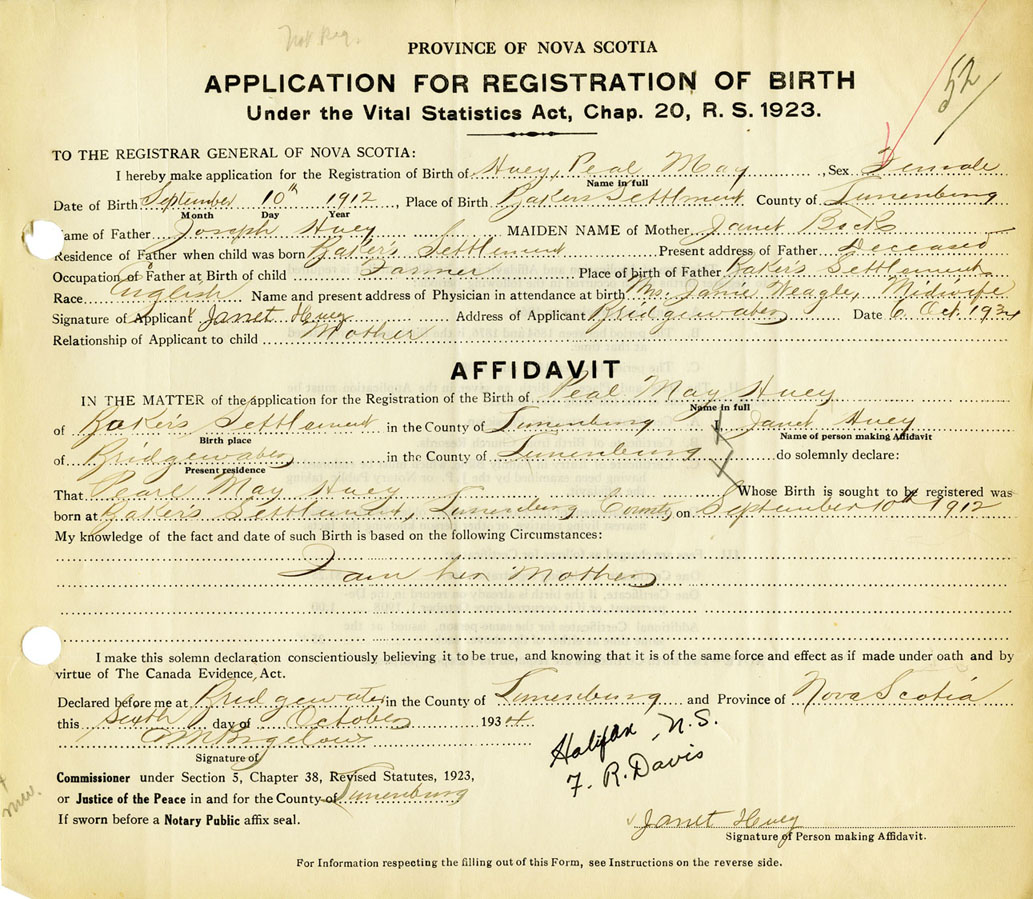 Not Reg.
PROVINCE OF NOVA SCOTIA
52
APPLICATION FOR REGISTRATION OF BIRTH
Under the Vital Statistics Act, Chap. 20, R. S. 1923.
TO THE REGISTRAR GENERAL OF NOVA SCOTIA:
I hereby make application for the Registration of Birth of Huey, Peal May, Sex Female
Name in full
Date of Birth September 10th 1912, Place of Birth Bakers Settlment County of Lunenburg
Month Day Year
Name of Father Joseph Huey MAIDEN NAME of Mother Janet
Residence of Father when child was born Baker's Settlement Present address of Father Deceased
Occupation of Father at Birth of child Farmer Place of birth of Father Baker's Settlement
Race English Name and present address of Physician in attendance at birth Mrs. Janie Weagle, Midwife
Signature of Applicant x Janet Huey Address of Applicant Bridgewater Date 6 Oct. 1934
Relationship of Applicant to child Mother
AFFIDAVIT
IN THE MATTER of the application for the Registration of the Birth of Peal May Huey
Name in full
of Baker's Settlement in the County of Lunenburg I, Janet Huey
Birth place Name of person making Affidavit
of Bridgewater in the County of Lunenburg do solemnly declare:
Present residence
That Pearl May Huey Whose Birth is sought to be registered was
born at Baker's Settlement, Lunenburg County on September 10th 1912
My knowledge of the fact and date of such Birth is based on the following Circumstances:
I am her Mother
I make this solemn declaration conscientiously believing it to be true, and knowing that it is of the same force and effect as if made under oath and by
virtue of The Canada Evidence Act.
Declared before me at Bridgewater in the County of Lunenburg and Province of Nova Scotia
this sixth day of October 1934
Bigelow
Signature of
Halifax, N.S.
F. R. Davis
Commissioner under Section 5, Chapter 38, Revised Statutes, 1923,
or Justice of the Peace in and for the County of Lunenburg
If sworn before a Notary Public affix seal.
Janet Huey
Signature of Person making Affidavit.
For Information respecting the filling out of this Form, see Instructions on the reverse side.